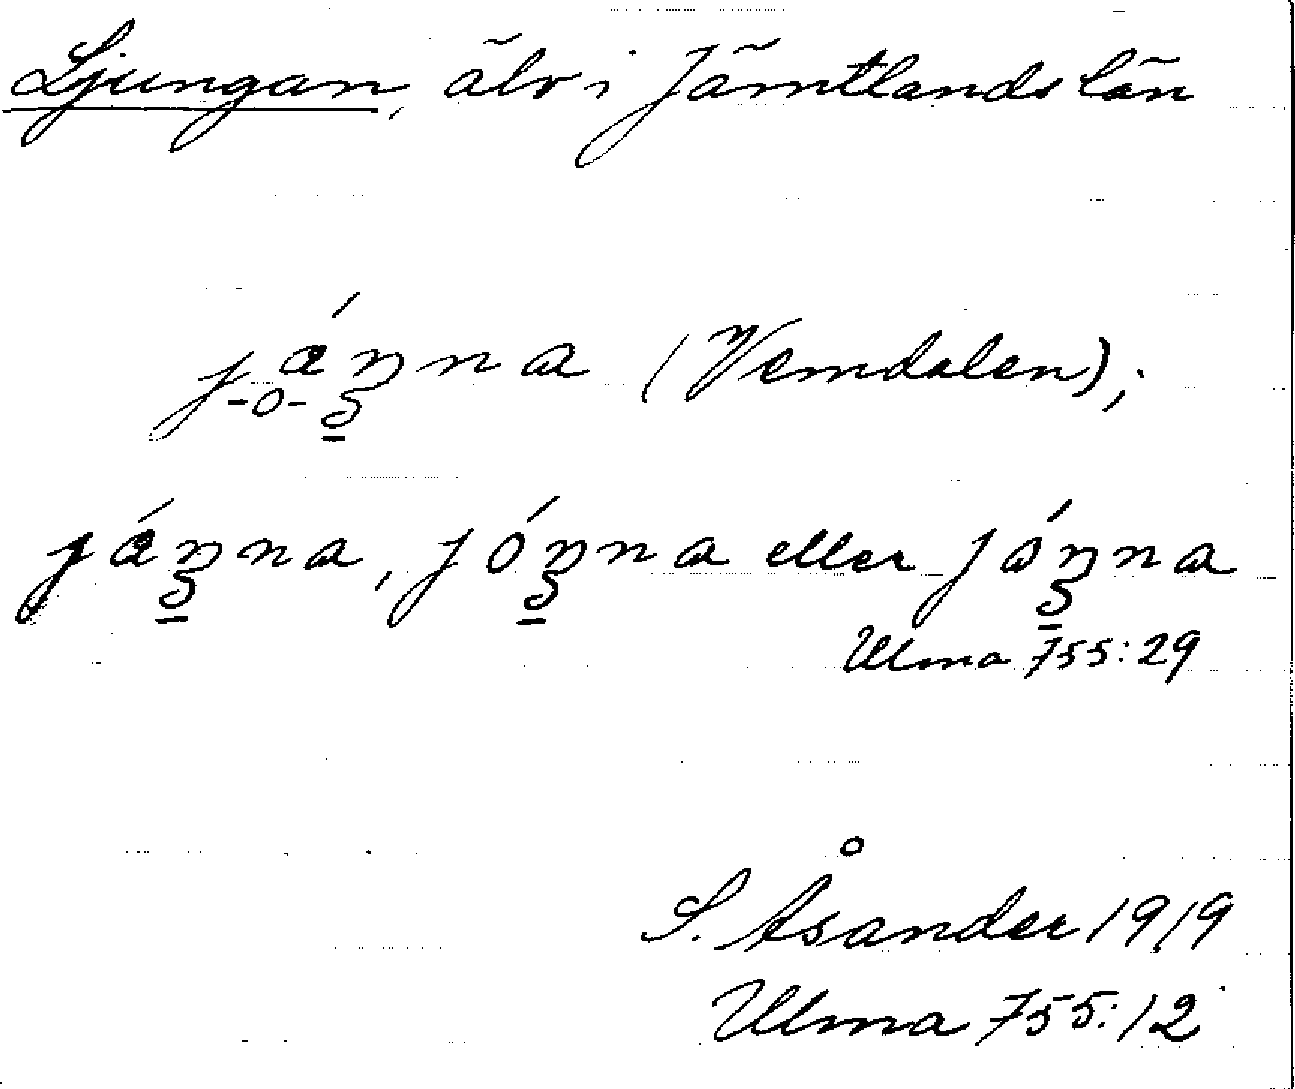 Ljungan, älv i Jämtlands län
jánna (Vemdalen);
jánna, jónna eller jónna
Ulma 755:29
S. Åsander 1919
Ulma 755:12